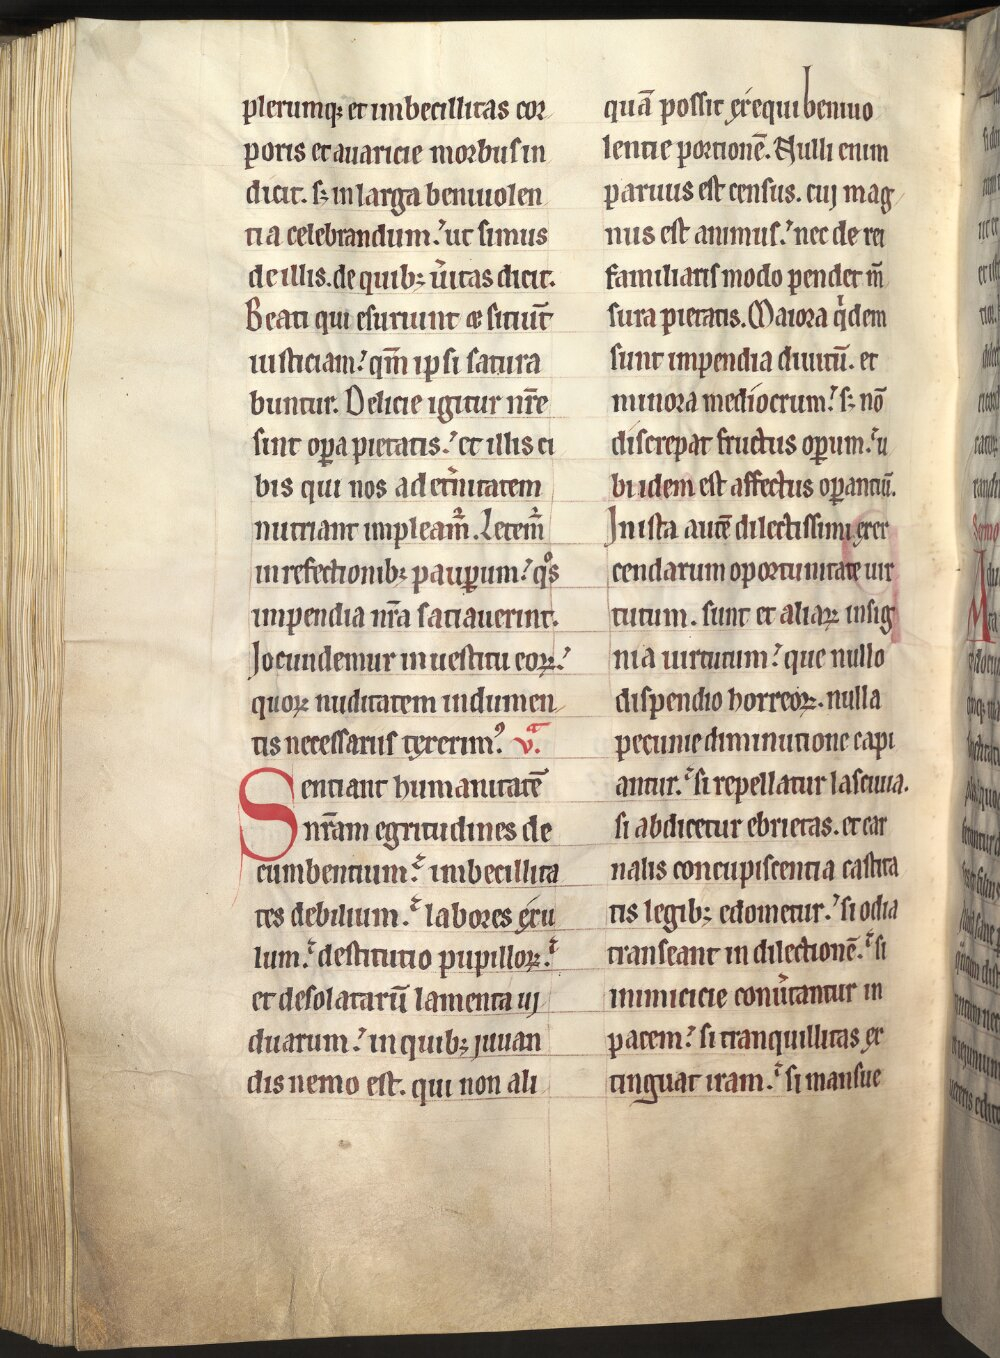 plerumq; et imbecillitas cor
poris et auaricie morbus in
dicit. s; in larga beniuolen
tia celebrandum. ut simus
de illis. de quib; u̅itas dicit.
Beati qui esuriunt & sitiu̅t
iusticiam. qm̅ ipsi satura
buntur. Delicie igitur nr̅e
sint oꝑa pietatis. et illis ci
bis qui nos ad et̅nitatem
nutriant impleam̅. Letem̅
in refectionib; pauꝑum. qͦs
impendia nr̅a satiauerint.
Jocundemur in uestitu eoꝝ.
quoꝝ nuditatem indumen
tis necessariis texerimꝰ. v.ͣ
Sentiant humanitate̅
nr̅am egritudines de
cumbentium. imbecillita
tes debilium. labores exu
lum. destitutio pupilloꝝ.
et desolataru̅ lamenta uj
duarum. in quib; juuan
dis nemo est. qui non ali
qua̅ possit exequi beniuo
lentie portione̅. Nulli enim
paruus est census. cuj mag
nus est animus. nec de rei
familiaris modo pendet m̅
sura pietatis. Maiora qͥdem
sunt impendia diuitu̅. et
minora mediocrum. s; no̅
discrepat fructus oꝑum. u
bi idem est affectus oꝑantiu̅.
In ista aute̅ dilectissimi exer
cendarum oportunitate uir
tutum. sunt et aliaꝝ insig
nia uirtutum. que nullo
dispendio horreoꝝ. nulla
pecunie diminutione capi
antur. si repellatur lasciuia.
si abdicetur ebrietas. et car
nalis concupiscentia castita
tis legib; edometur. si odia
transeant in dilectione̅. si
inimicicie conu̅tantur in
pacem. si tranquillitas ex
tinguat iram. si mansue